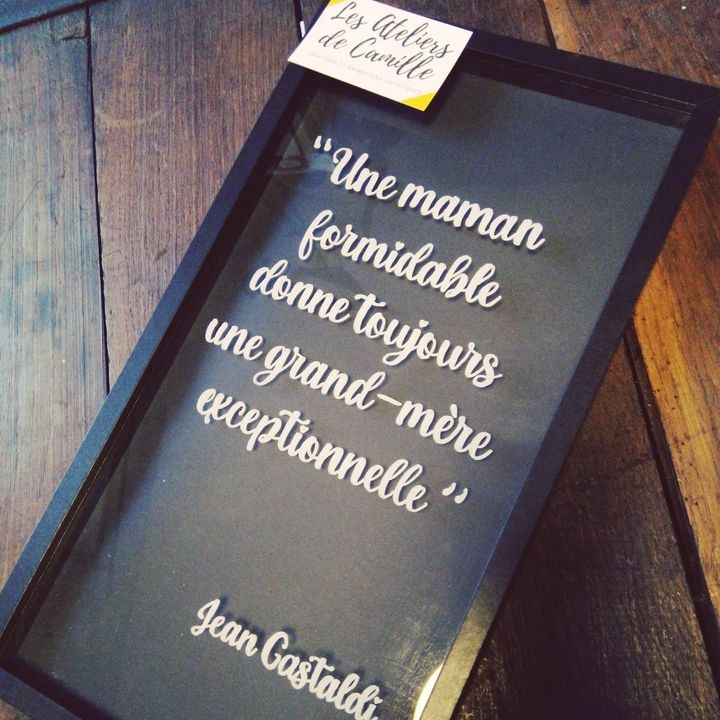 Les Ateliers
de Camille
CRÉATIONS ET ANIMATIONS ARTISTIQUES
“Une maman
formidable
donne toujours
une grand-mère
exceptionnelle ”
Jean Gastaldi